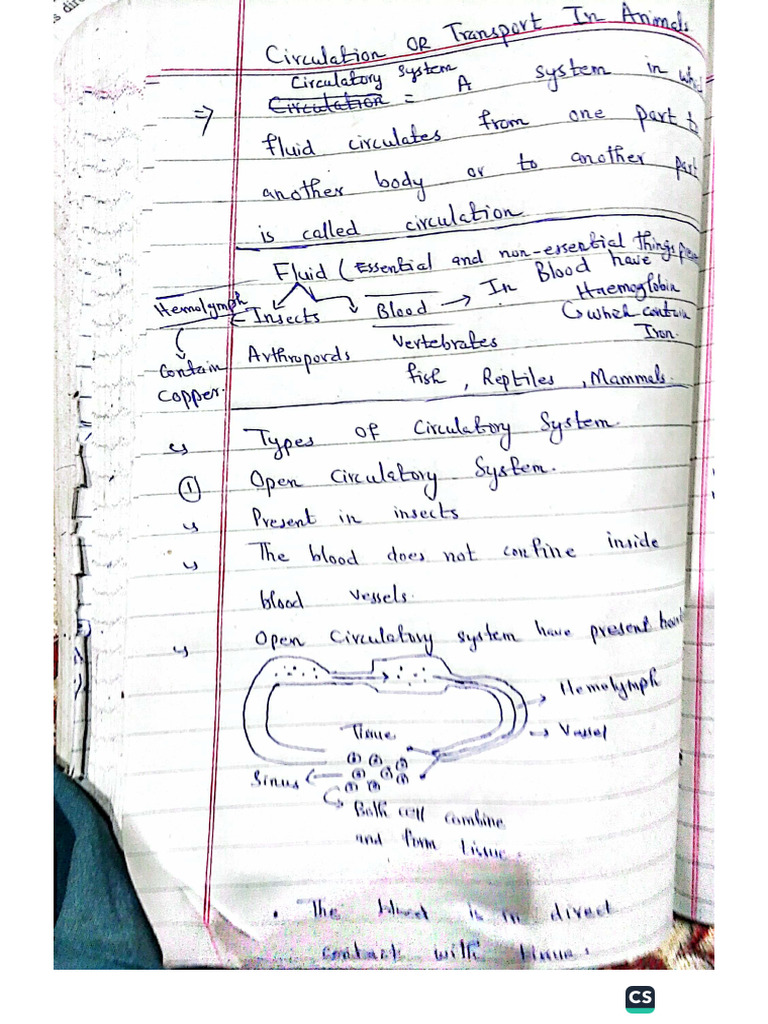 Circulation OR Transport In Animals
Circulatory system
⇒ Circulation = A system in
fluid circulates from one part to
another body or to another part
is called circulation
Fluid (Essential and non-essential Things
Hemolymph Insects Blood → In Blood have
Haemoglobin
Contain Arthropords Vertebrates which contain
Iron.
Copper. fish, Reptiles, Mammals.
Types of Circulatory System.
① Open Circulatory System.
Present in insects
The blood does not confine inside
blood vessels.
Open Circulatory system have present
Hemolymph
Tissue Vessel
Sinus
Both cell combine
and form tissue.
• The blood is in direct
contact with tissues
CS